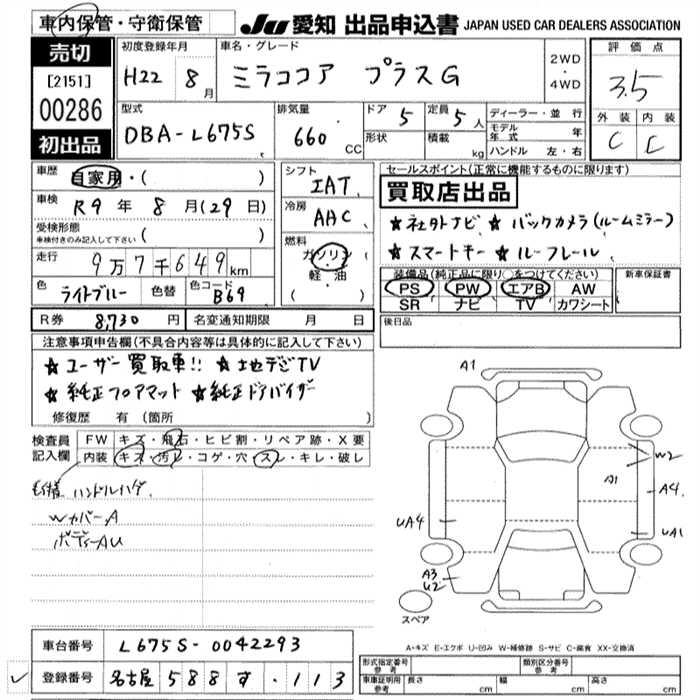 車内保管・守衛保管
JU 愛知 出品申込書 JAPAN USED CAR DEALERS ASSOCIATION
売切
[2151]
00286
初出品
初度登録年月
H22 8月
車名・グレード
ミラココア プラスG
2WD
・
4WD
評価点
3.5
外装 内装
C C
型式
DBA-L675S
排気量
660 CC
ドア 5
形状
定員 5人
積載 kg
ディーラー・並行
モデル年式 年
ハンドル 左・右
車歴 自家用・( )
車検 R9年8月(29日)
受検形態
車検付きのみ記入して下さい ( )
走行 9万7千649km
色 ライトブルー 色替 色コード B69
シフト
IAT
冷房
AAC
燃料
ガソリン
軽・油
( )
セールスポイント(正常に機能するものに限ります)
買取店出品
★社外ナビ ★バックカメラ(ルームミラー)
★スマートキー ★ルーフレール
装備品(純正品に限り○をつけてください)
PS PW エアB AW
SR ナビ TV カワシート
新車保証書
R券 8,730円 名変通知期限 月 日
後日品
注意事項申告欄(不具合内容等は具体的に記入して下さい)
★ユーザー買取車!! ★地デジTV
★純正フロアマット ★純正ドアバイザー
修復歴 有(箇所 )
検査員
記入欄
FW キズ・飛石・ヒビ割・リペア跡・X要
内装 キズ・汚レ・コゲ・穴・スレ・キレ・破レ
ハンドルハゲ
WカバーA
ボディーAU
A1
W2
A1
A4
UA4
UA1
A3
U2
スペア
A-キズ E-エクボ U-凹み W-補修跡 S-サビ C-腐食 XX-交換済
車台番号 L675S-0042293
登録番号 名古屋 588 す ・113
形式指定番号
参考
類別区分番号
参考
車庫証明用
参考
長さ cm 幅 cm 高さ cm